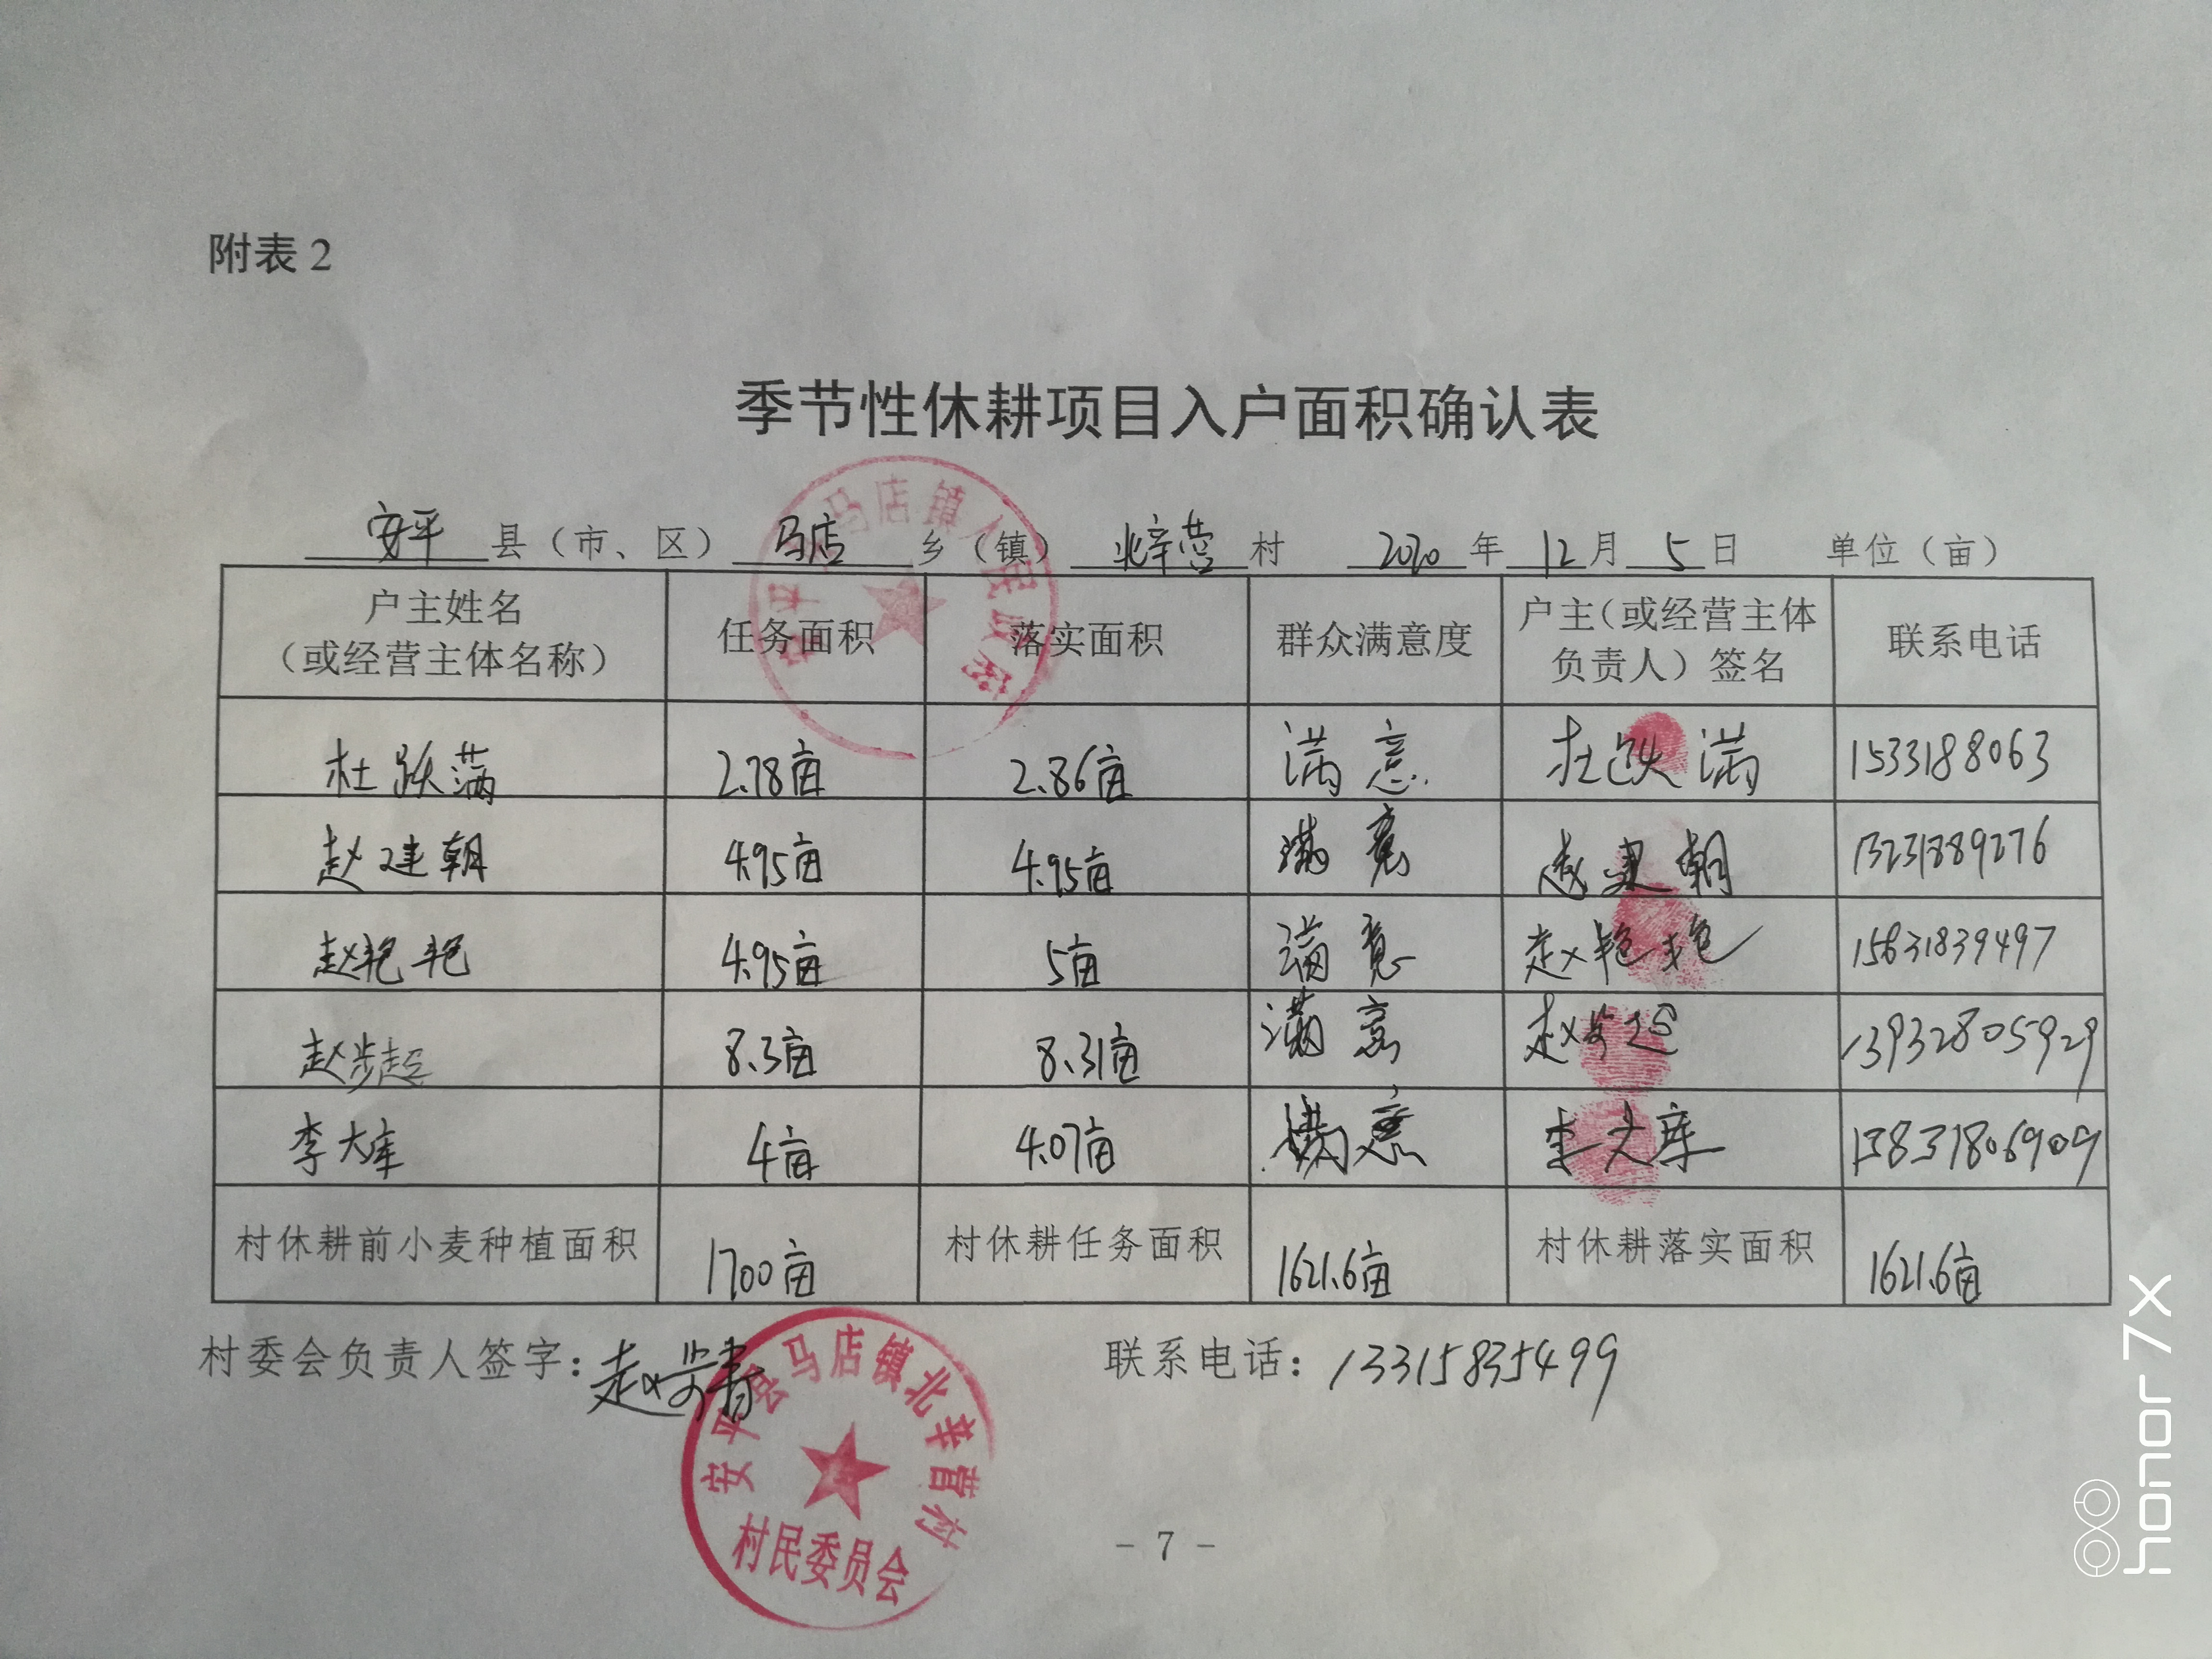 附表2
季节性休耕项目入户面积确认表
安平县（市、区）马店乡（镇）北辛营村 2020年12月5日 单位（亩）
户主姓名（或经营主体名称） 任务面积 落实面积 群众满意度 户主（或经营主体负责人）签名 联系电话
杜跃满 2.78亩 2.86亩 满意 杜跃满 1533188063
赵建朝 4.95亩 4.95亩 满意 赵建朝 13231889276
赵艳艳 4.95亩 5亩 满意 赵艳艳 15631839497
赵步超 8.3亩 8.31亩 满意 赵步超 13932805929
李大库 4亩 4.07亩 满意 李大库 13831806909
村休耕前小麦种植面积 1700亩 村休耕任务面积 1621.6亩 村休耕落实面积 1621.6亩
村委会负责人签字： 联系电话：13315835499
安平县马店镇人民政府
安平县马店镇北辛营村
村民委员会
- 7 -
honor 7X